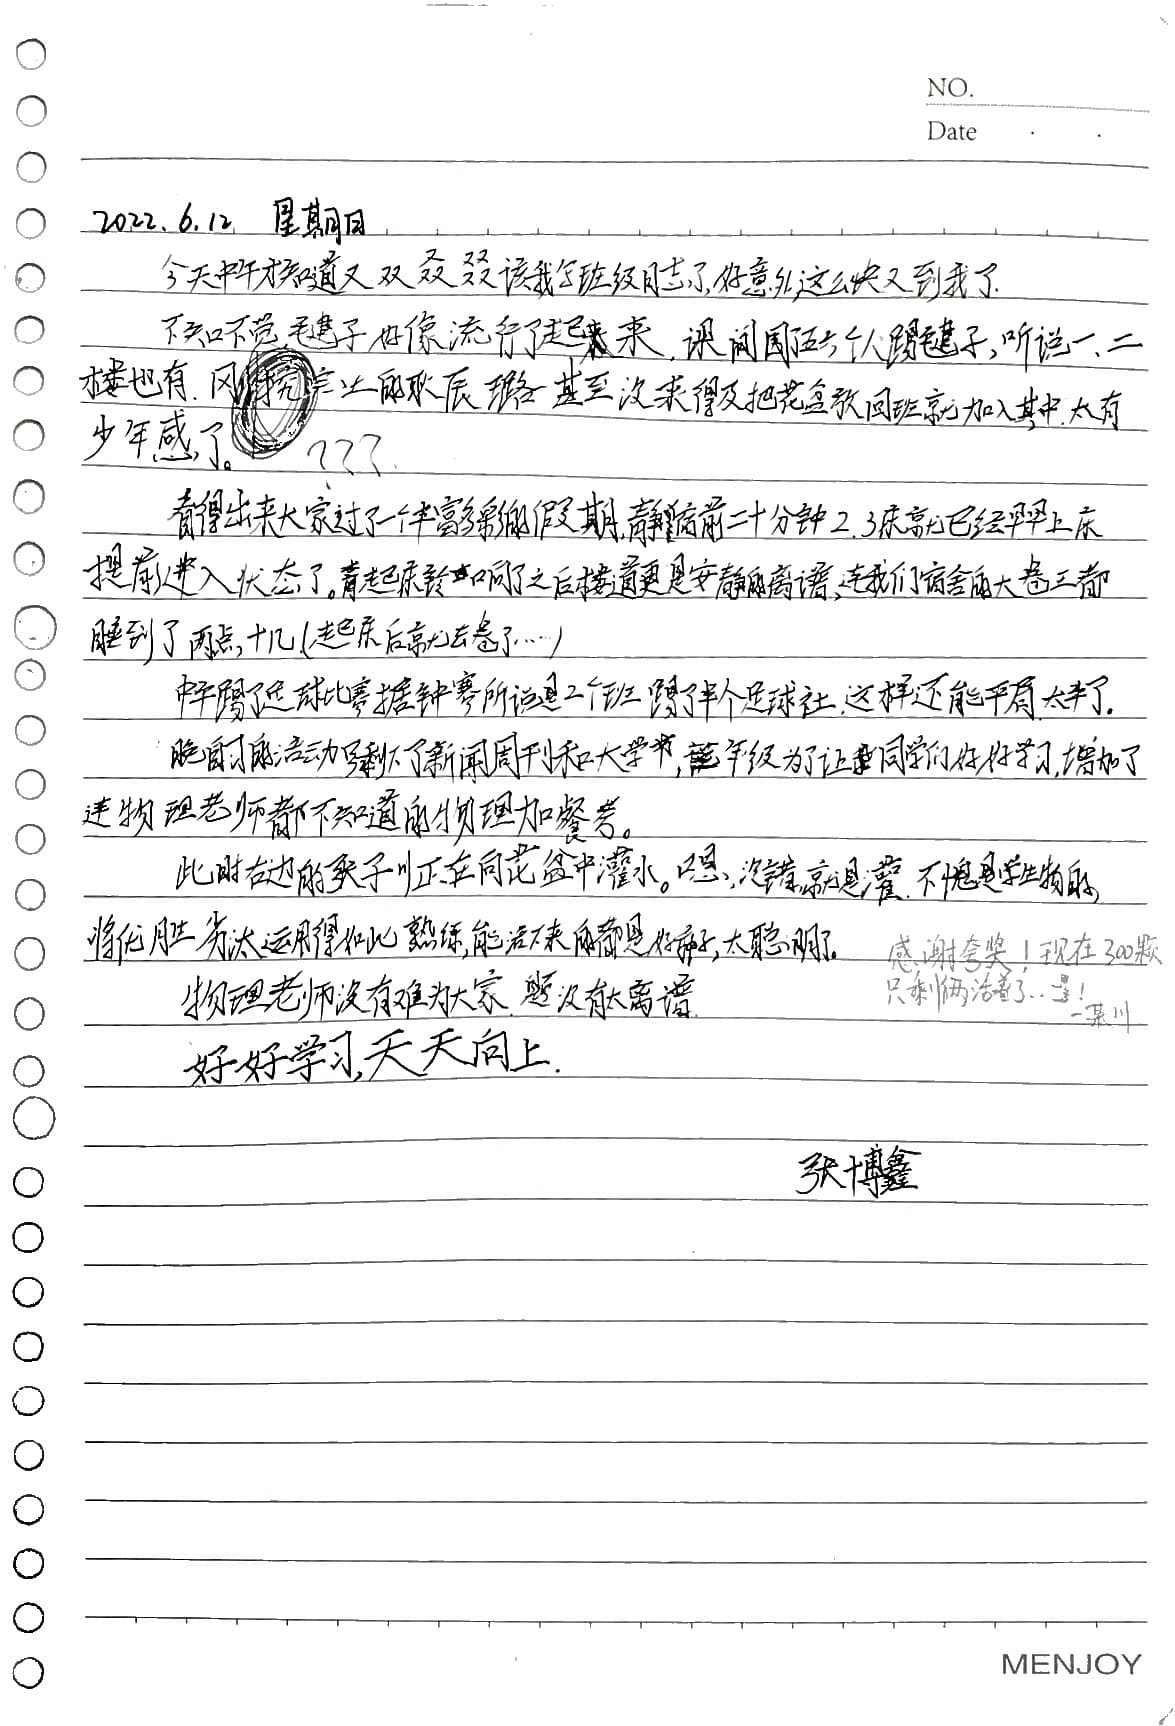 NO.
Date
2022.6.12 星期日
今天中午才知道又双叒叕该我写班级日志了,好意外,这么快又到我了.
不知不觉,毽子好像流行了起来,课间围五六个人踢毽子,听说一、二
楼也有.刚 完 的耿辰璐甚至没来得及把花盆放回班就加入其中.太有
少年感了。 ???
看得出来大家过了一个丰富多彩的假期,静躺前二十分钟2.3床就已经早早上床
提前进入状态了。起床铃响了之后楼道更是安静的离谱,连我们宿舍的大卷王都
睡到了两点十几(起床后就去卷了……)
中午踢了足球比赛据钟赛所说是二个班踢了半个足球社.这样还能平局.太丰了.
晚自习的活动只剩下了新闻周刊和大学书,年级为了让同学们好好学习,增加了
连物理老师都不知道的物理加餐考。
此时右边的栗子川正在向花盆中灌水。嗯,没错,就是灌.不愧是学生物的,
将优胜劣汰运用得如此熟练,能活下来的都是好种子,太聪明了。
感谢夸奖!现在300颗
只剩俩活着了...!
物理老师没有难为大家.题没有太离谱.
好好学习,天天向上.
张博鑫
MENJOY